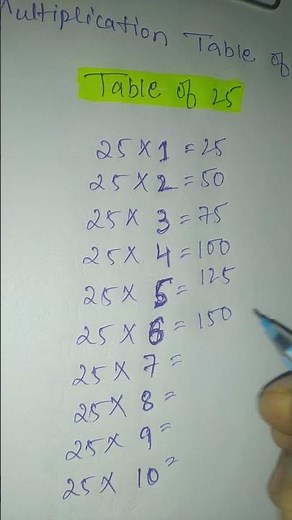 Multiplication Table of
Table of 25
25 × 1 = 25
25 × 2 = 50
25 × 3 = 75
25 × 4 = 100
25 × 5 = 125
25 × 6 = 150
25 × 7 =
25 × 8 =
25 × 9 =
25 × 10 =